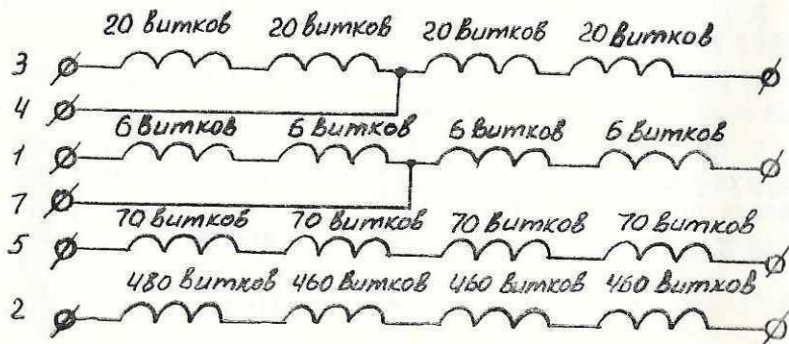 20 витков 20 витков 20 витков 20 витков
3
4
6 витков 6 витков 6 витков 6 витков
1
7
70 витков 70 витков 70 витков 70 витков
5
480 витков 460 витков 460 витков 460 витков
2